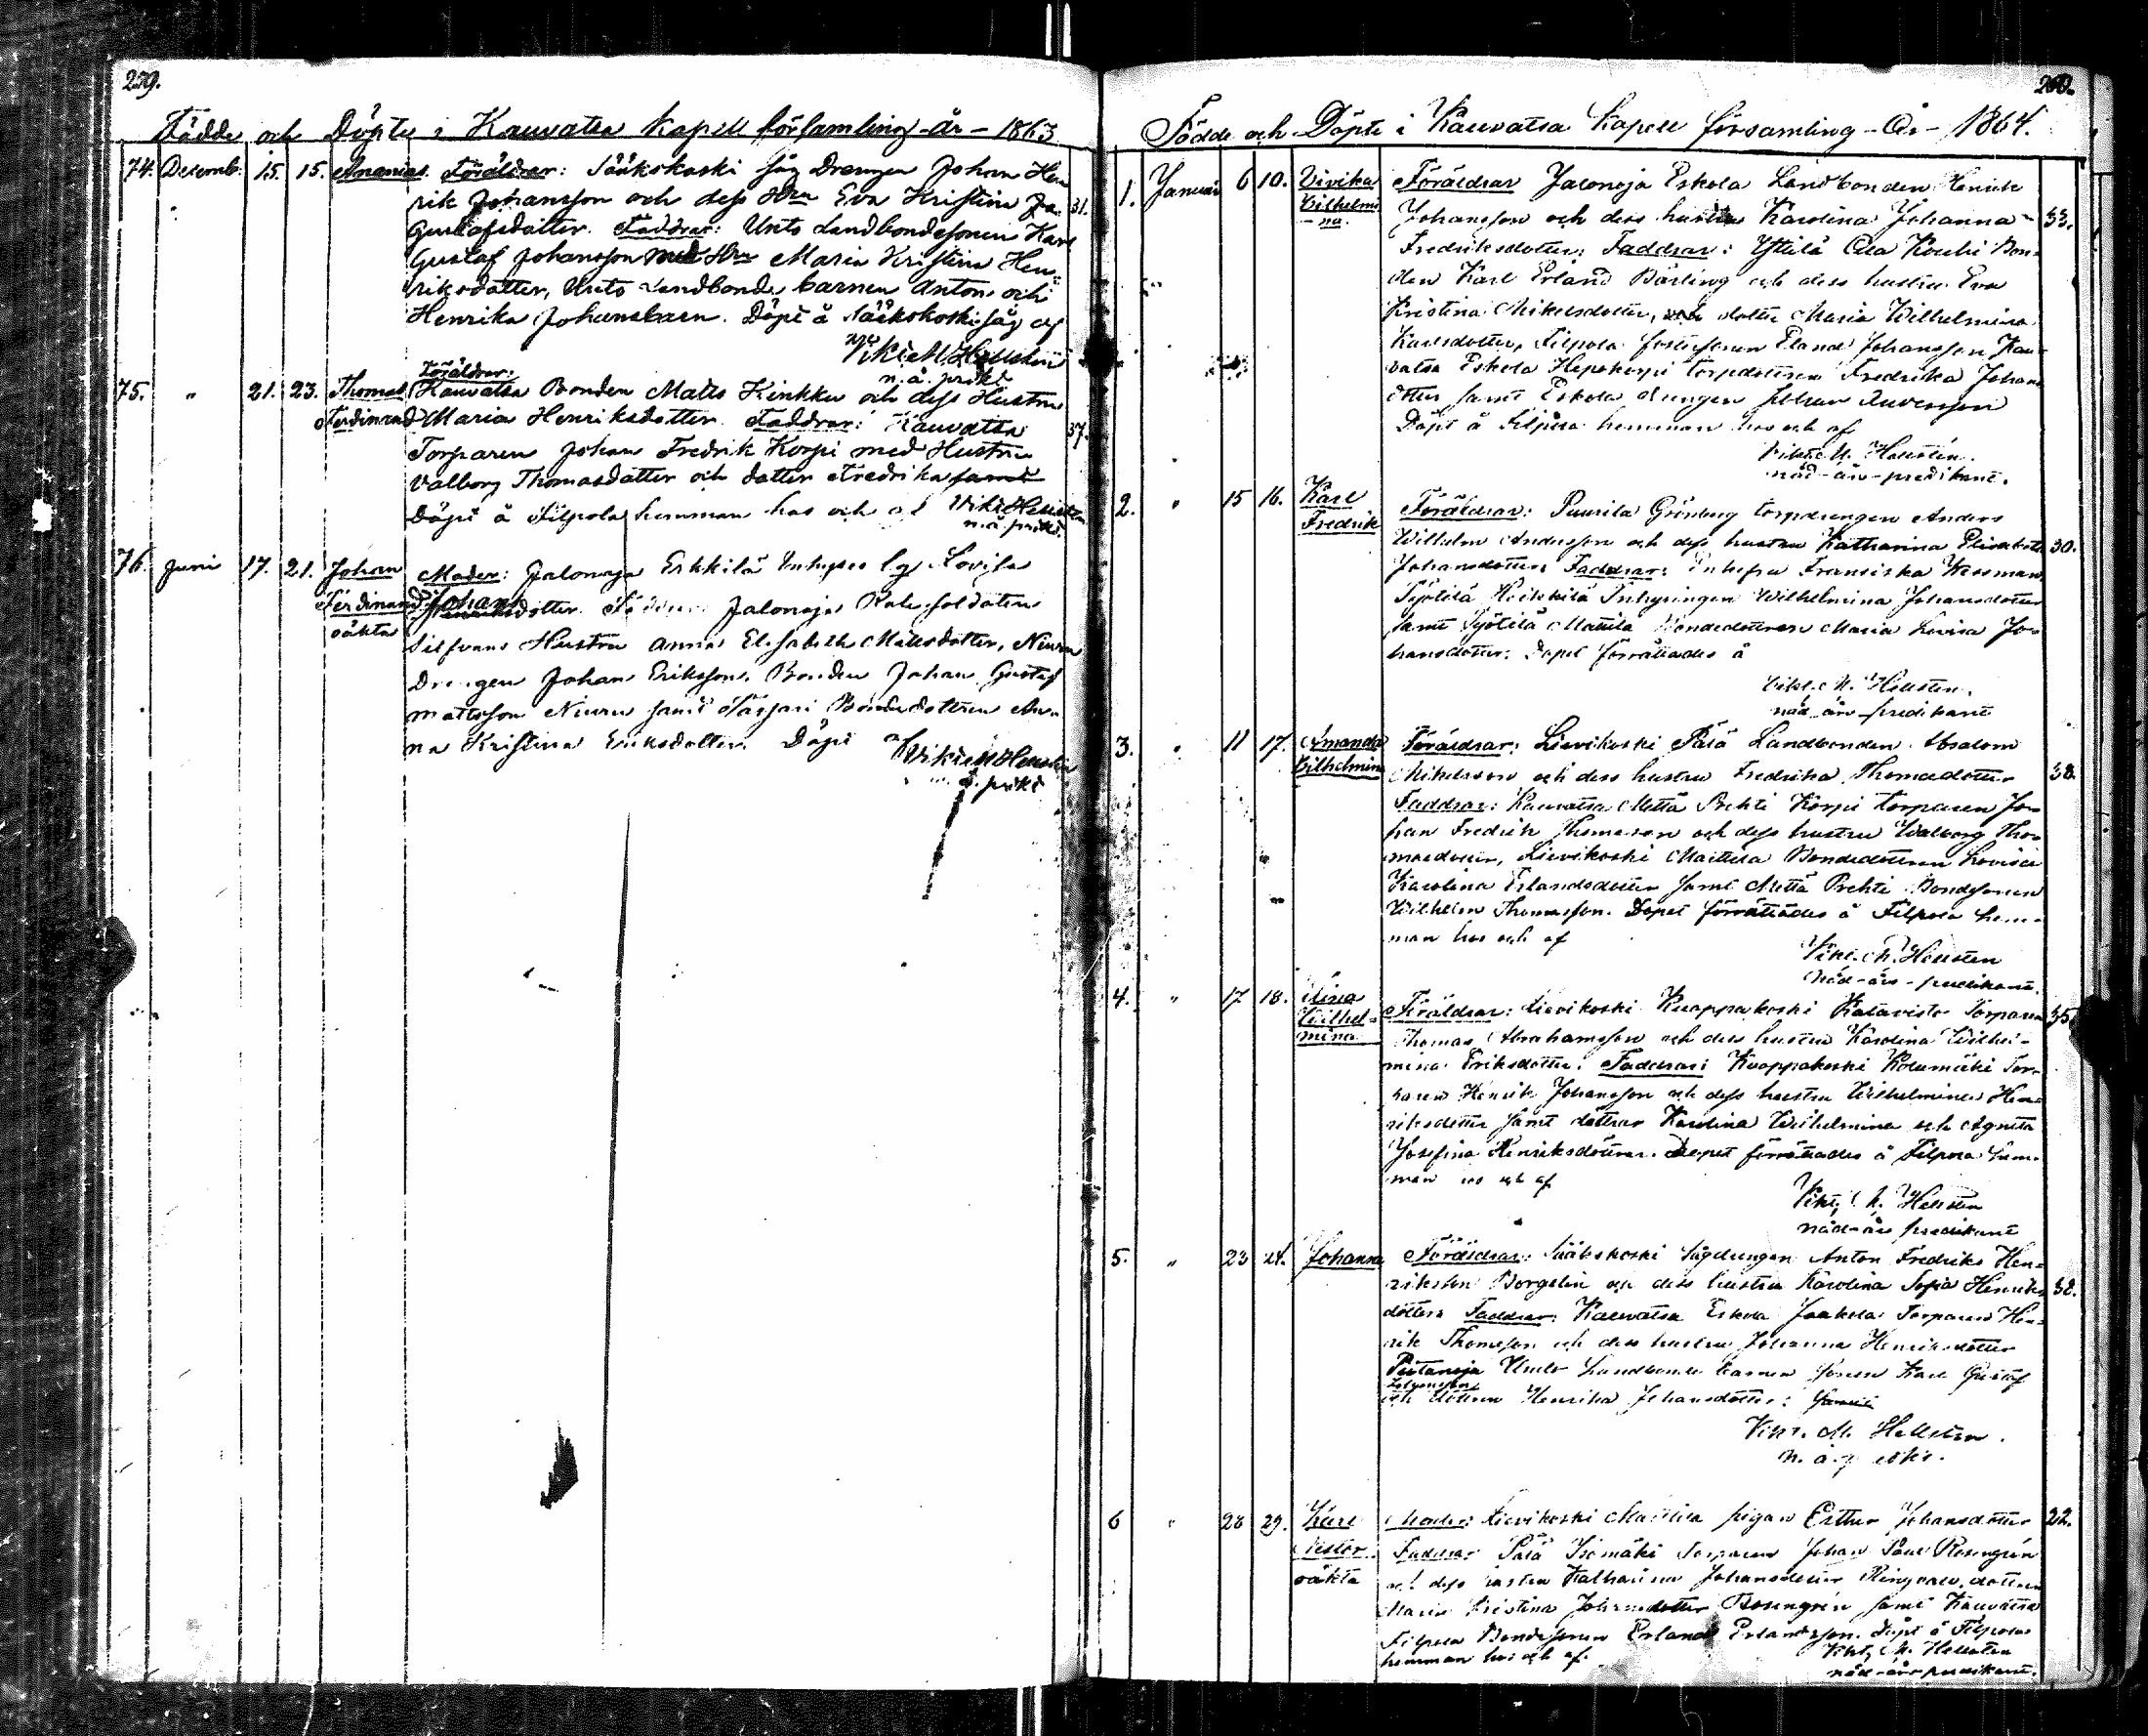 239.
Födde och Döpte i Kauvatsa Kapell församling år - 1863
74. Decemb: 15. 15. Ananias. Föräldrar: Sääkskoski såg Drengen Johan Hen
rik Johansson och dess Hru Eva Kristina 31.
Gustafsdotter. Faddrar: Unto Landbondesonen Karl
Gustaf Johansson med Hru Maria Kristina Hen-
riksdotter, Unto Landbonde barnen Anton och
Henrika Johansbarn. Döpt å Sääkskoski såg af
Vikt M Hellsten
n. å. prdkt
Föräldrar:
75. " 21. 23. Thomas Kauvatsa Bonden Matts Kinkku och dess Hustru
Ferdinand Maria Henriksdotter. Faddrar: Kauvatsa 37.
Torparen Johan Fredrik Korpi med Hustru
Valborg Thomasdotter och dotter Fredrika samt
Döpt å Filpola hemman hos och af Vikt Hellsten
n. å. prdkt.
76. Juni 17. 21. Johan Moder: Jalonoja Erkkilä Inhyses Lovisa
Ferdinand Johansdotter. Jalonoja Rote soldaten
oäkta Silfvans Hustru Anna Elisabeth Mattsdotter, Niuru
Drengen Johan Eriksson. Bonden Johan Gustaf
Mattsson Niuru samt Bondedottren An-
na Kristina Eriksdotter. Döpt af
Vikt M Hellsten
n. å. prdkt
240.
Födde och Döpte i Kauvatsa Kapell församling - År - 1864.
1. Januari 6 10. Vivika Föräldrar Jalonoja Eskola Landbonden Henrik
Vilhelmi Johansson och dess hustru Karolina Johanna 33.
-na. Fredriksdotter; Faddrar: Yttilä Ala Kouhi Bon-
den Karl Erland Bärling och dess hustru Eva
Kristina Mikelsdotter, dotter Maria Wilhelmina
Karlsdotter, Filpola fostersonen Eland Johansson Kau-
vatsa Eskola Hepokorpi torpdottren Fredrika Johans
dotter samt Eskola drengen Johan Andersson
Döpt å Filpola hemman hos och af
Vikt. M. Hellstén.
nåd-års-predikant.
2. " 15 16. Karl Föräldrar: Puurila Grönberg torpdrengen Anders
Fredrik Wilhelm Andersson och dess hustru Katharina Elisabeth 30.
Johansdotter. Faddrar: Enkefru Fransiska Wessman,
Työtilä Inhysingen Wilhelmina Johansdotter
samt Työtilä Mattila Bondedottren Maria Lovisa Jo-
hansdotter. Dopet förrättades å
Vikt. M. Hellsten.
nåd-års-predikant
3. " 11 17. Amanda Föräldrar: Lievikoski Pälä Landbonden Absalom
Vilhelmina Mikelsson och dess hustru Fredrika Thomasdotter 38.
Faddrar: Kauvatsa Mettä Prehti Korpi torparen Jo-
han Fredrik Thomasson och dess hustru Walborg Tho-
masdotter, Lievikoski Mattila Bondedottren Lovisa
Karolina Erlandsdotter samt Mettä Prehti Bondsonen
Wilhelm Thomasson. Dopet förrättades å Filpola hem-
man hos och af
Vikt. M. Hellsten
nåd-års-predikant.
4. " 17 18. Föräldrar: Lievikoski Kuoppakoski Katavisto Torparen 35
Wilhel- Thomas Abrahamsson och dess hustru Karolina Wilhel-
mina mina Eriksdotter. Faddrar: Kuoppakoski Kolumäki Tor-
paren Henrik Johansson och dess hustru Wilhelmina Hen-
riksdotter samt döttrar Karolina Wilhelmina och Agneta
Josefina Henriksdöttrar. Dopet förrättades å Filpola hem-
man hos och af
Vikt. M. Hellsten
nåd-års predikant
5. " 23 24. Johanna Föräldrar: Sääkskoski Sågdrengen Anton Fredrik Hen-
riksson Borgelin och dess hustru Karolina Sofia Henriks 32.
dotter. Faddrar: Kauvatsa Eskola Jaakola Torparen Hen-
rik Thomsson och dess hustru Johanna Henriksdotter
Piitanoja Unto Landbonde barnen sonen Karl Gustaf
Johansson
och dottren Henrika Johansdotter; samt
Vikt. M. Hellsten.
n. å. predikt.
6 " 28 29. Karl Moder: Lievikoski Mattila pigan Esther Johansdotter 22.
Nestor Faddrar Pälä Isomäki Torparen Johan Rosengrén
oäkta och dess hustru Katharina Johansdotter dottren
Maria Kristina Johansdotter Rosengrén samt Kauvatsa
Filpola Bondesonen Erland Erlandsson. Döpt å Filpola
hemman hos och af. Vikt. M. Hellsten
nåd-års-predikant.